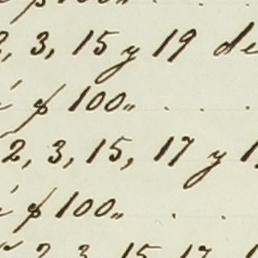 2, 3, 15 y 19 de
á $100,, . . .
2, 3, 15, 17 y 1
á $100,, . .
2, 3, 15, 17